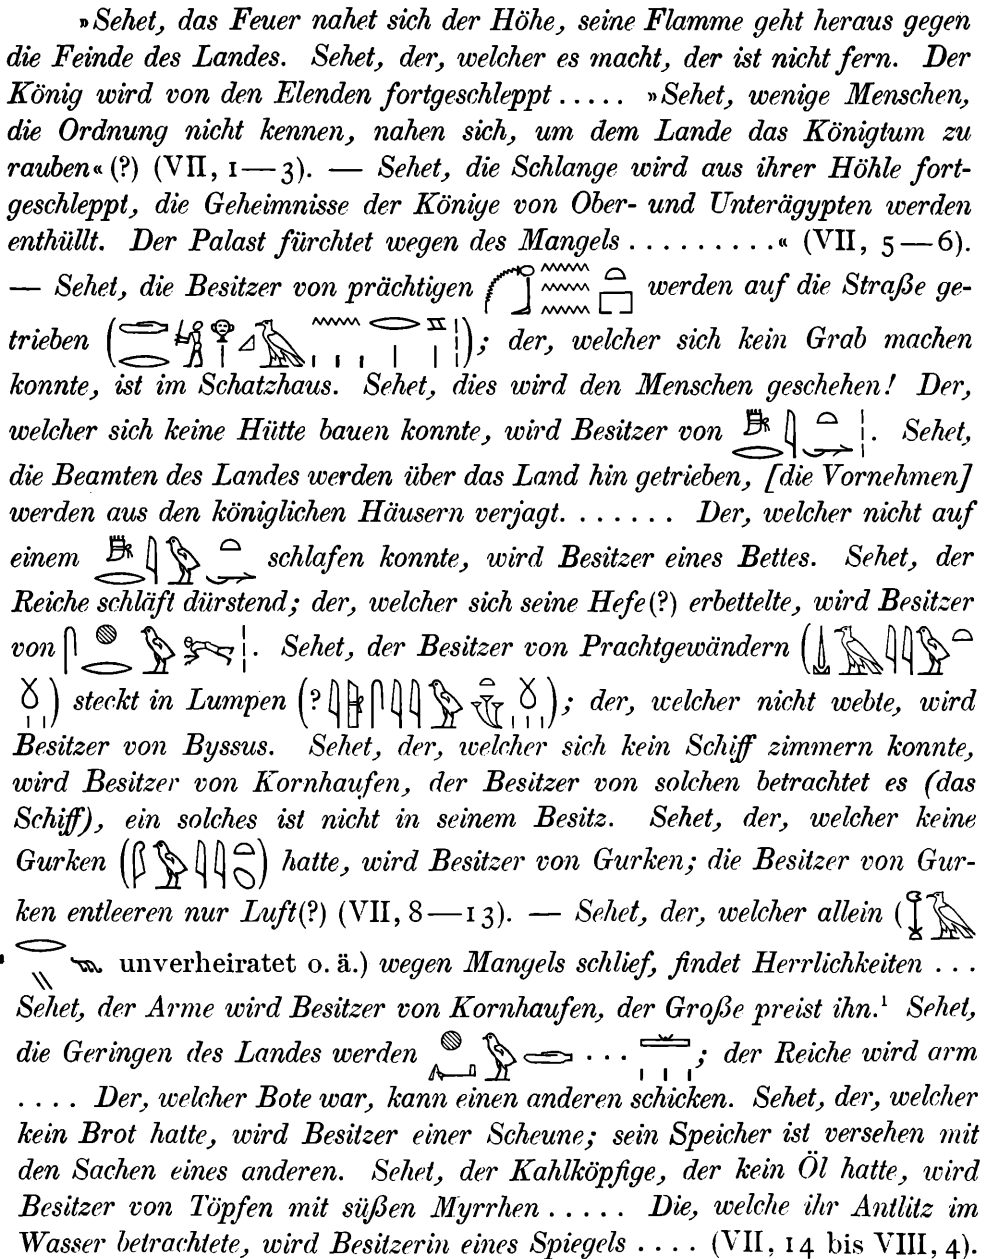 »Sehet, das Feuer nahet sich der Höhe, seine Flamme geht heraus gegen
die Feinde des Landes. Sehet, der, welcher es macht, der ist nicht fern. Der
König wird von den Elenden fortgeschleppt ..... »Sehet, wenige Menschen,
die Ordnung nicht kennen, nahen sich, um dem Lande das Königtum zu
rauben« (?) (VII, 1—3). — Sehet, die Schlange wird aus ihrer Höhle fort-
geschleppt, die Geheimnisse der Könige von Ober- und Unterägypten werden
enthüllt. Der Palast fürchtet wegen des Mangels ..........« (VII, 5—6).
— Sehet, die Besitzer von prächtigen werden auf die Straße ge-
trieben ( ); der, welcher sich kein Grab machen
konnte, ist im Schatzhaus. Sehet, dies wird den Menschen geschehen! Der,
welcher sich keine Hütte bauen konnte, wird Besitzer von . Sehet,
die Beamten des Landes werden über das Land hin getrieben, [die Vornehmen]
werden aus den königlichen Häusern verjagt. ...... Der, welcher nicht auf
einem schlafen konnte, wird Besitzer eines Bettes. Sehet, der
Reiche schläft dürstend; der, welcher sich seine Hefe(?) erbettelte, wird Besitzer
von . Sehet, der Besitzer von Prachtgewändern (
) steckt in Lumpen (? ); der, welcher nicht webte, wird
Besitzer von Byssus. Sehet, der, welcher sich kein Schiff zimmern konnte,
wird Besitzer von Kornhaufen, der Besitzer von solchen betrachtet es (das
Schiff), ein solches ist nicht in seinem Besitz. Sehet, der, welcher keine
Gurken ( ) hatte, wird Besitzer von Gurken; die Besitzer von Gur-
ken entleeren nur Luft(?) (VII, 8—13). — Sehet, der, welcher allein (
unverheiratet o. ä.) wegen Mangels schlief, findet Herrlichkeiten ...
Sehet, der Arme wird Besitzer von Kornhaufen, der Große preist ihn.¹ Sehet,
die Geringen des Landes werden ... ; der Reiche wird arm
.... Der, welcher Bote war, kann einen anderen schicken. Sehet, der, welcher
kein Brot hatte, wird Besitzer einer Scheune; sein Speicher ist versehen mit
den Sachen eines anderen. Sehet, der Kahlköpfige, der kein Öl hatte, wird
Besitzer von Töpfen mit süßen Myrrhen ..... Die, welche ihr Antlitz im
Wasser betrachtete, wird Besitzerin eines Spiegels .... (VII, 14 bis VIII, 4).